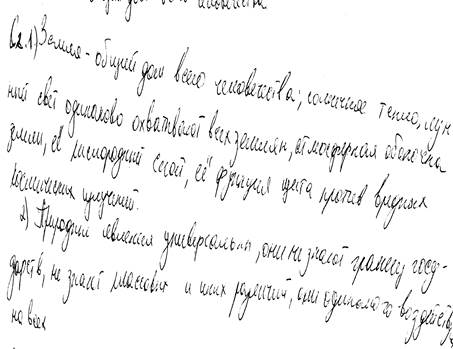 человечества
С2. 1) Земля - общий дом всего человечества; солнечное тепло, лун
ный свет одинаково охватывают всех землян, атмосферная оболочка
земли, её кислородный слой, её функция щита против вредных
космических излучений.
2) Природные явления универсальны, они не знают границ госу-
дарств, не знают классовых и иных различий, они одинаково воздейству
на всех